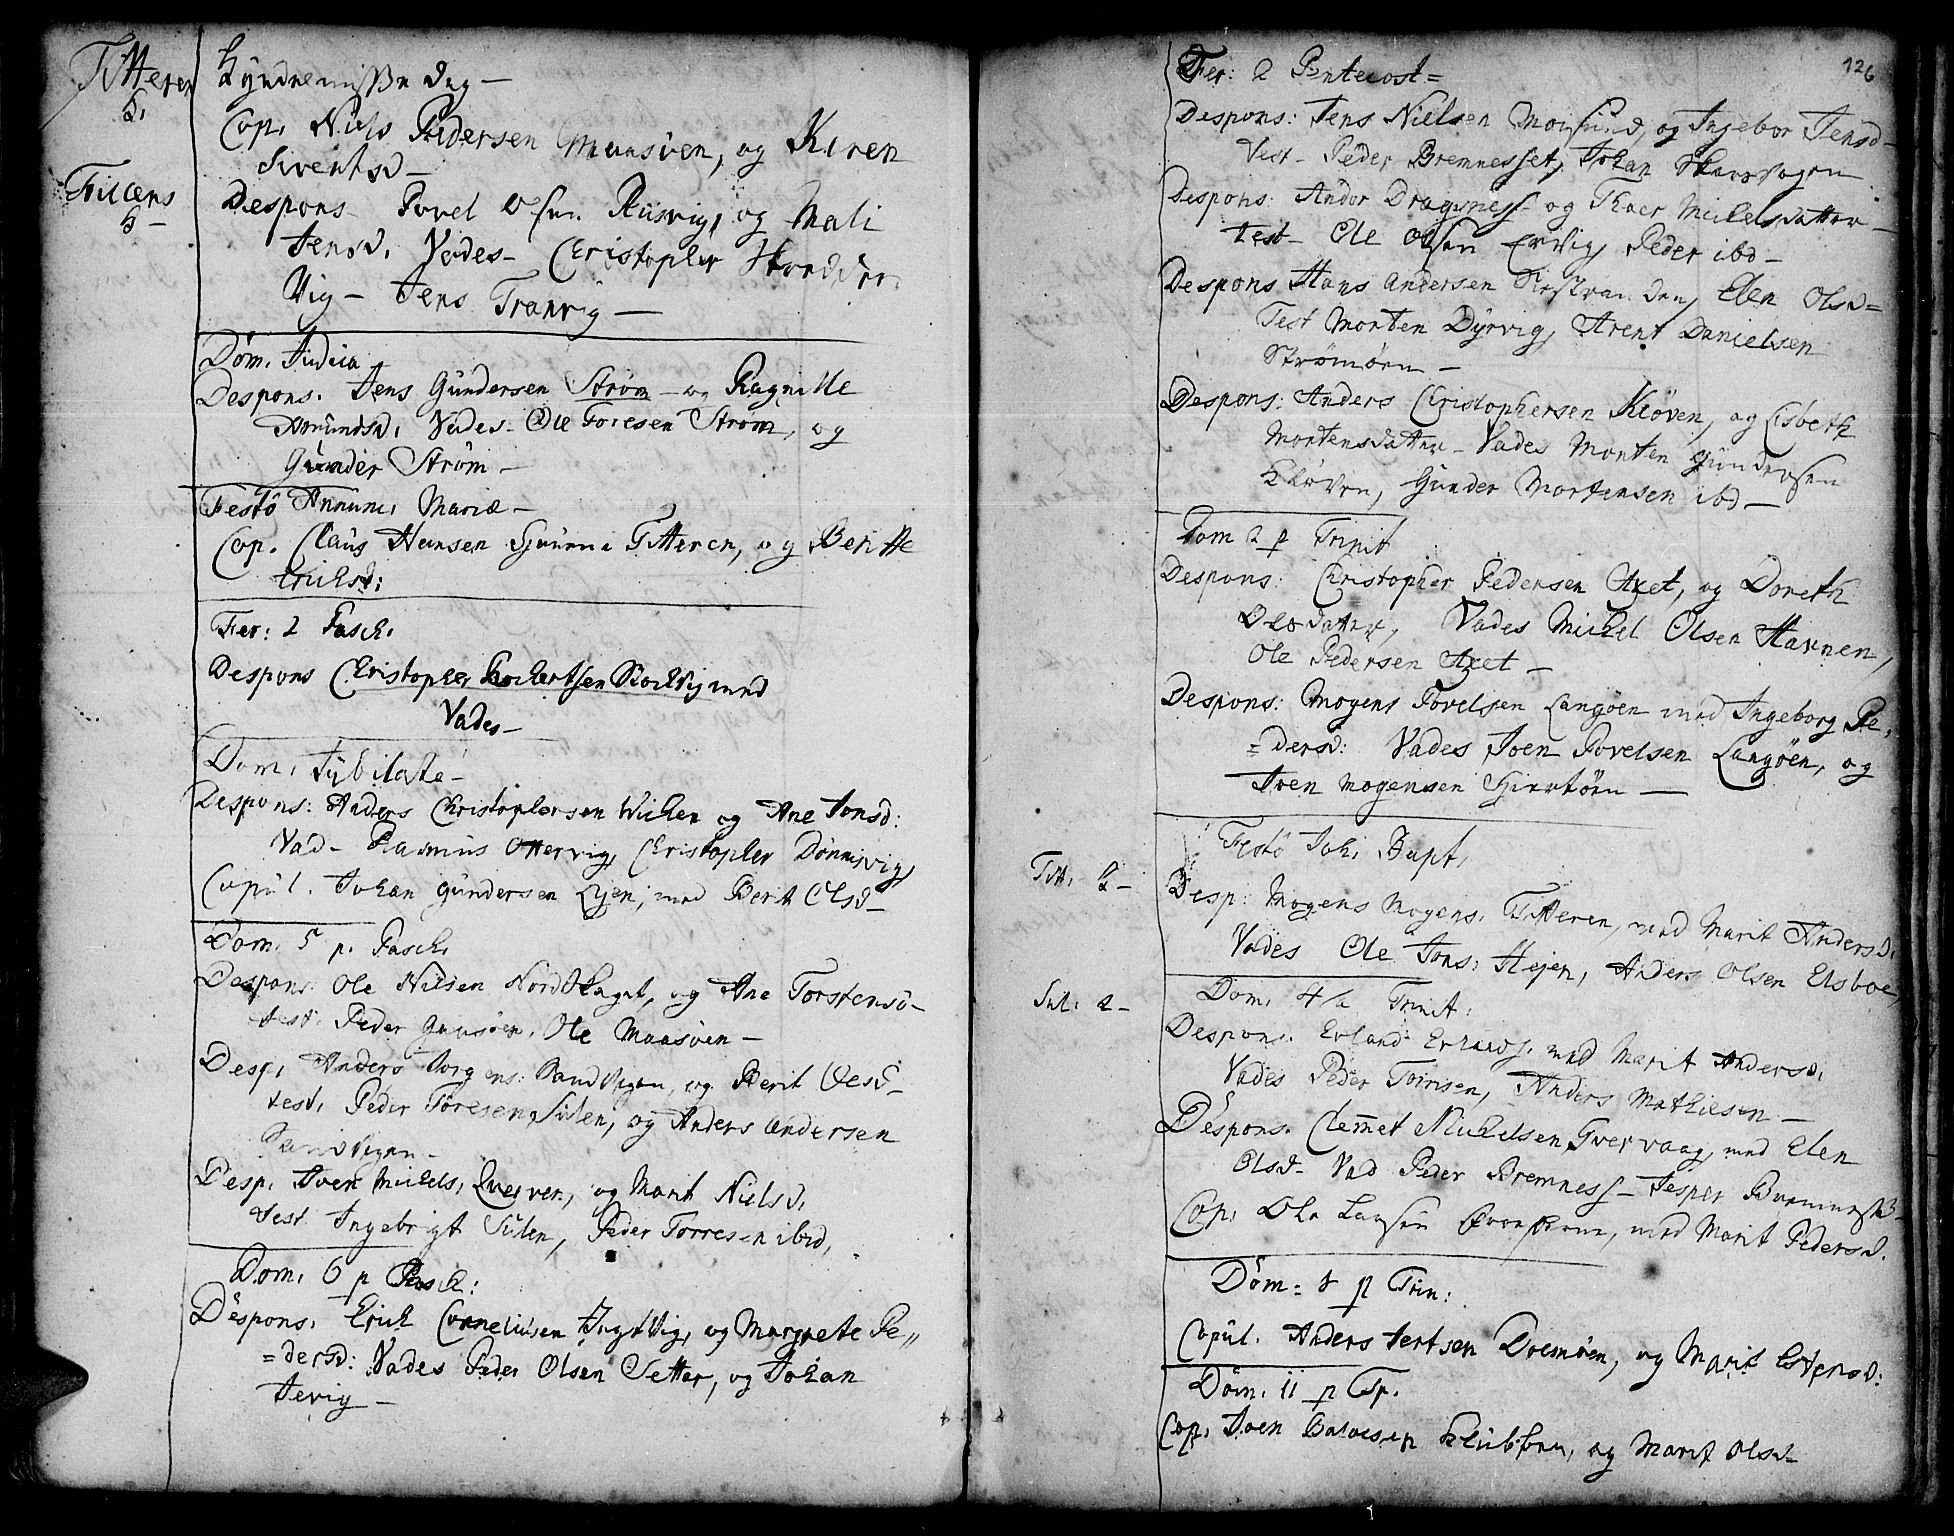 Titteren
2.
Kyndelmisse dag –
Cop. Niels Pedersen Maasöen, og Karen
Sivertsd –
Fillens
2 –
Despons – Povel Olsen Risvig, og Mali
Jensd. Vades – Christopher Skordder
Vig – Jens Tranvig –
Dom. Judica
Despons. Jens Gundersen Strøm – og Ragnille
Amundsd. Vades – Ole Toresen Strøm, og
Gunder Strøm –
Festo Annunc. Mariæ –
Cop. Claus Hansen Titteren, og Beritte
Erichsd:
Fer: 2 Pasch.
Despons Christopher Storvig med
Vades –
Dom. Jubilate –
Despons: Anders Christophersen Wichen og Ane Jonsd:
Vad – Rasmus Ottervig, Christopher Dönnisvig,
Copul. Johan Gundersen Lyen, med Berit Olsd –
Dom. 5 p. Pasch.
Despons: Ole Nilsen Nordskaget, og Ane Torstensd –
test. Peder Gaasöen, Ole Maasöen –
Desp. Anders Jörgens: Sandvigen, og Berit Olesd –
test. Peder Toresen Sulen, og Anders Andersen
Sandvigen –
Desp. Iver Michels. Qverven, og Marit Nielsd.
test. Ingebrigt Sulen, Peder Torresen ibid,
Dom. 6 p Pasch:
Despons. Erich Corneliusen Jegtvig, og Margrete Pe„
= dersd: Vades Peder Olsen Setter, og Johan
Jevig –
126
Fer: 2 Pentecost =
Despons: Jens Nielsen Morsund, og Ingebor Jensd –
Test – Peder Bremnesset, Johan Skarsvogen
Despons: Andor Dragsness – og Thoer Michelsdatter –
test – Ole Olsen Ervig, Peder ibd –
Despons Hans Andersen Kirstranden, Elen Olsd =
Test Morten Dyrvig, Arent Danielsen
Strömöen –
Despons: Anders Christophersen Klöven, og Lisbeth
Mortensdatter – Vades Morten Gundersen
Klöven, Gunder Mortensen ibd –
Dom 2 p Trinit
Despons: Christopher Pedersen Axet, og Doreth
Olesdatter, Vades Michel Olsen Havnen,
Ole Pedersen Axet –
Despons: Mogens Povelsen Langöen med Ingeborg Pe,
= dersd: Vades Joen Povelsen Langöen, og
Iven Mogensen Hiertöen –
Festo Joh. Bapt.
Titt. 2 –
Desp: Mogens Mogens. Titteren, med Marit Andersd.
Vades Ole Jons. Hejen, Anders Olsen Elsboe,
Sul. 2 –
Dom. 4 p Trinit:
Despons. Erland Erlands. med Marit Andersd.
Vades Peder Torrisen, Anders Mathiesen –
Despons. Clemmet Nichelsen Tvervaag, med Elen
Olsd – Vad Peder Bremness – Jesper
Cop. Ole Larsen, med Marit Pedersd.
Dom = 8 p Trin:
Copul. Anders Jertsen Dolmöen, og Marit Estensd:
Dom. 11 p Tr.
Cop. Iven Halvesen, og Marit Olsd –